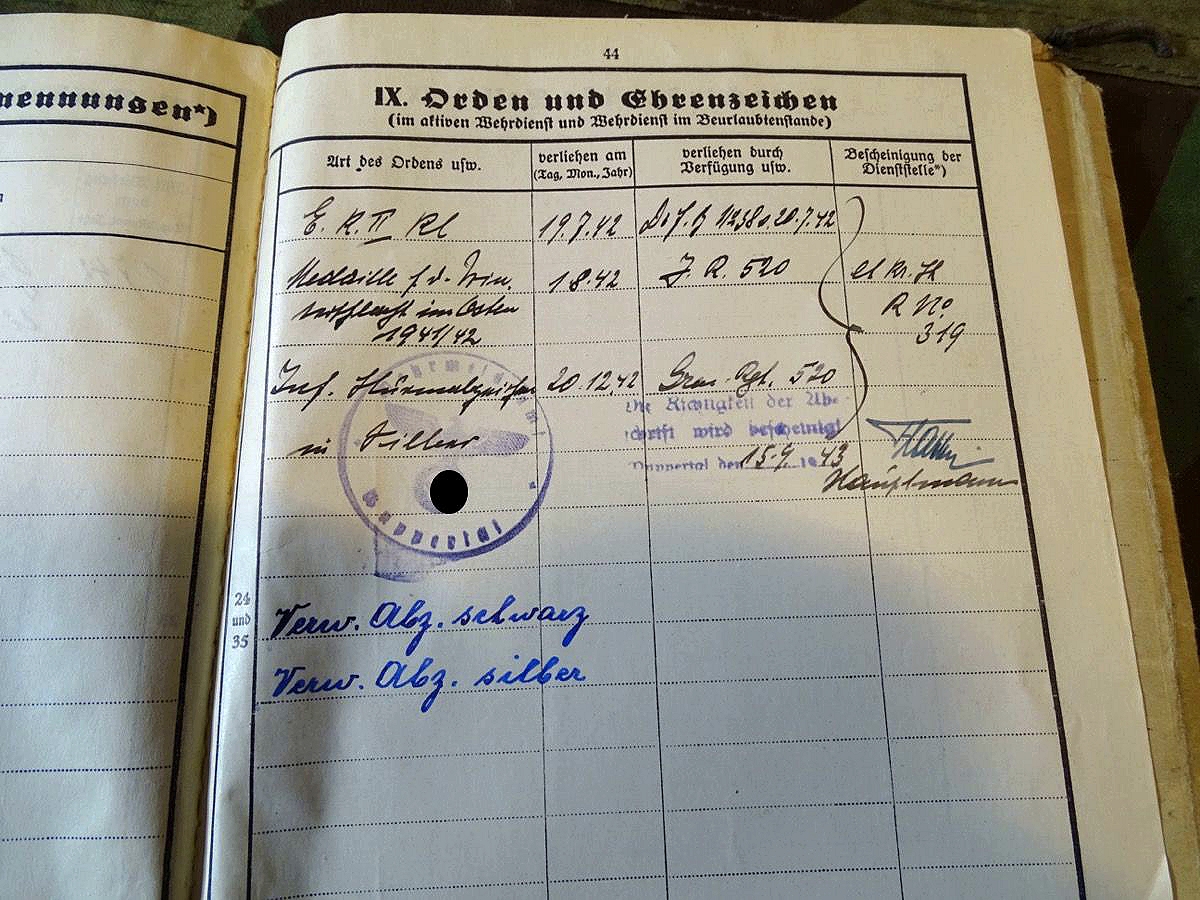 nennungen*)
44
IX. Orden und Ehrenzeichen
(im aktiven Wehrdienst und Wehrdienst im Beurlaubtenstande)
Art des Ordens usw.
verliehen am
(Tag, Mon., Jahr)
verliehen durch
Verfügung usw.
Bescheinigung der
Dienststelle*)
E. K. II Kl
19.7.42
20.7.42
Medaille f. d. Win.
terschlacht im Osten
1941/42
1 8.42
J. R. 520
Kr. St
R No
319
Inf. Sturmabzeichen
in Silber
20.12.42
Gren. Rgt. 520
Die Richtigkeit der Ab-
schrift wird bescheinigt
Wuppertal den 15.9. 1943
Hauptmann
Wuppertal
24
und
35
Verw. Abz. schwarz
Verw. Abz. silber